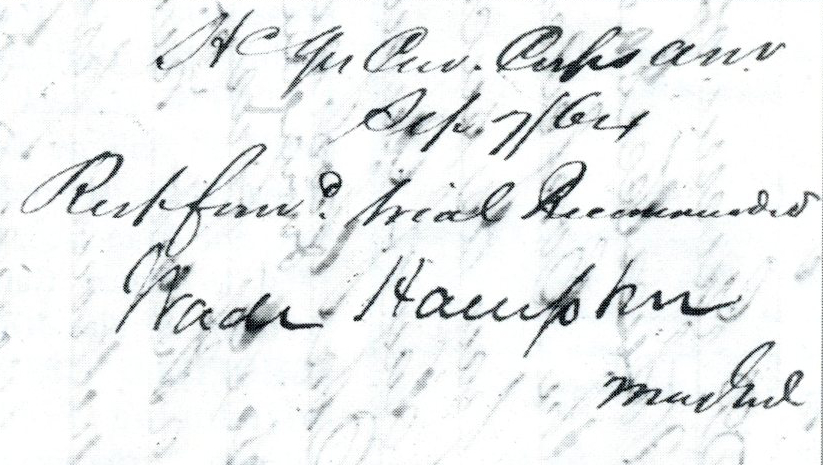 Hd Qrs Cav. Corps ANV
Sep. 7/64
Resp forwd. trial Recommended
Wade Hampton
Maj Genl